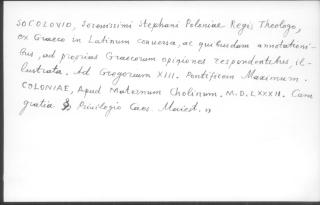 SOCOLOVIO, Serenissimi Stephani Poloniae Regis Theologo,
ex Graeco in Latinum conuersa, ac quibusdam annotationi-
bus, ad prouias Graecorum opiniones respondentibus, il-
lustrata. Ad Gregorium XIII. Pontificem Maximum.
COLONIAE, Apud Maternum Cholinum. M.D.LXXXII. Cum
gratia & Priuilegio Caes. Maiest. "